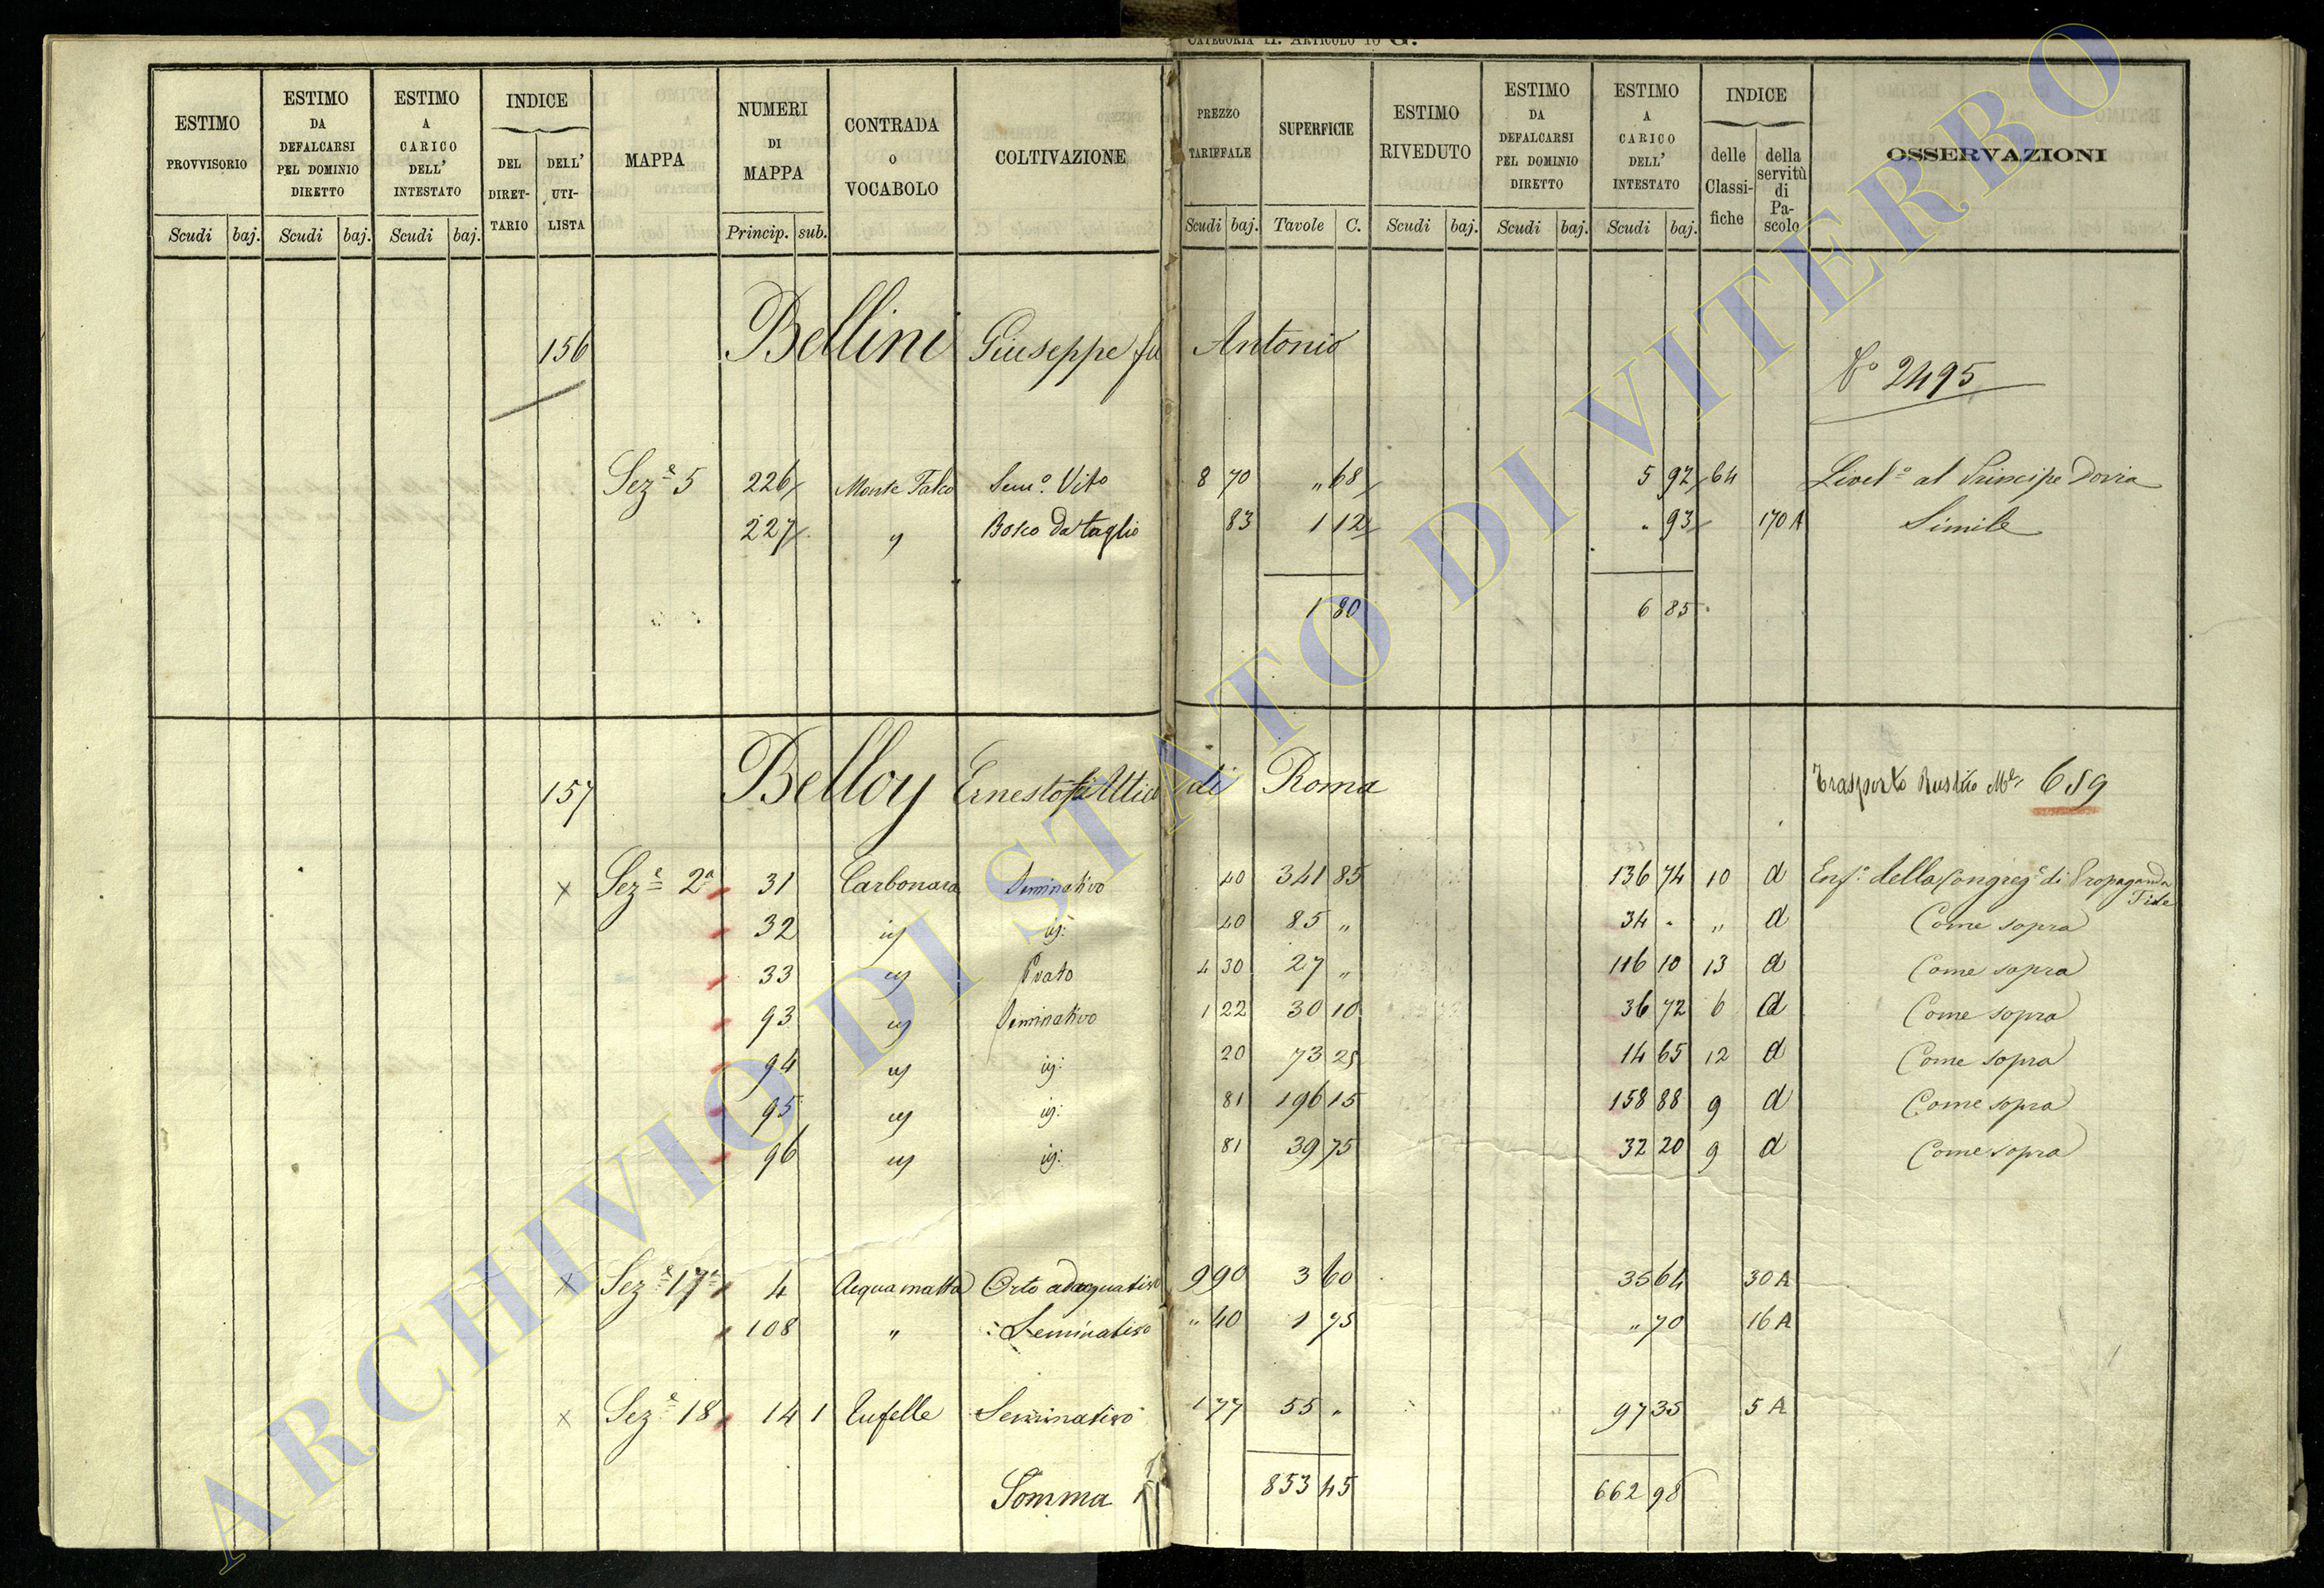 CATEGORIA II. ARTICOLO 10 G.
ESTIMO PROVVISORIO | ESTIMO DA DEFALCARSI PEL DOMINIO DIRETTO | ESTIMO A CARICO DELL' INTESTATO | INDICE DEL DIRET-TARIO | DELL' UTI-LISTA | MAPPA | NUMERI DI MAPPA | CONTRADA O VOCABOLO | COLTIVAZIONE | PREZZO TARIFFALE | SUPERFICIE | ESTIMO RIVEDUTO | ESTIMO DA DEFALCARSI PEL DOMINIO DIRETTO | ESTIMO A CARICO DELL' INTESTATO | INDICE delle Classi-fiche | della servitù di Pa-scolo | OSSERVAZIONI
Scudi baj. Scudi baj. Scudi baj. Princip. sub. Scudi baj. Tavole C. Scudi baj. Scudi baj. Scudi baj.
156 Bellini Giuseppe fu Antonio
N° 2495
Sez.e 5 226 Monte Falco Sem.o Vito 8 70 " 68 5 92 64 Livel.o al Principe Doria
227 " Bosco da taglio 83 1 12 " 93 170 A Simile
1 80 6 85
157 Belloy Ernesto di Roma
Trasporto Rustico 659
x Sez.e 2a 31 Carbonara Seminativo 40 341 85 136 74 10 d Enf.a della Congreg.e di Propaganda Fide
32 id id: 40 85 " 34 " " d Come sopra
33 id Prato 4 30 27 " 116 10 13 d Come sopra
93 id Seminativo 1 22 30 10 36 72 6 d Come sopra
94 id id: 20 73 25 14 65 12 d Come sopra
95 id id: 81 196 15 158 88 9 d Come sopra
96 id id: 81 39 75 32 20 9 d Come sopra
x Sez.e 17a 4 Acquamatta Orto adacquativo 9 90 3 60 35 64 30 A
108 " Seminativo " 40 1 75 " 70 16 A
x Sez.e 18 14 1 Tufelle Seminativo 1 77 55 " 97 35 5 A
Somma 853 45 662 98
ARCHIVIO DI STATO DI VITERBO